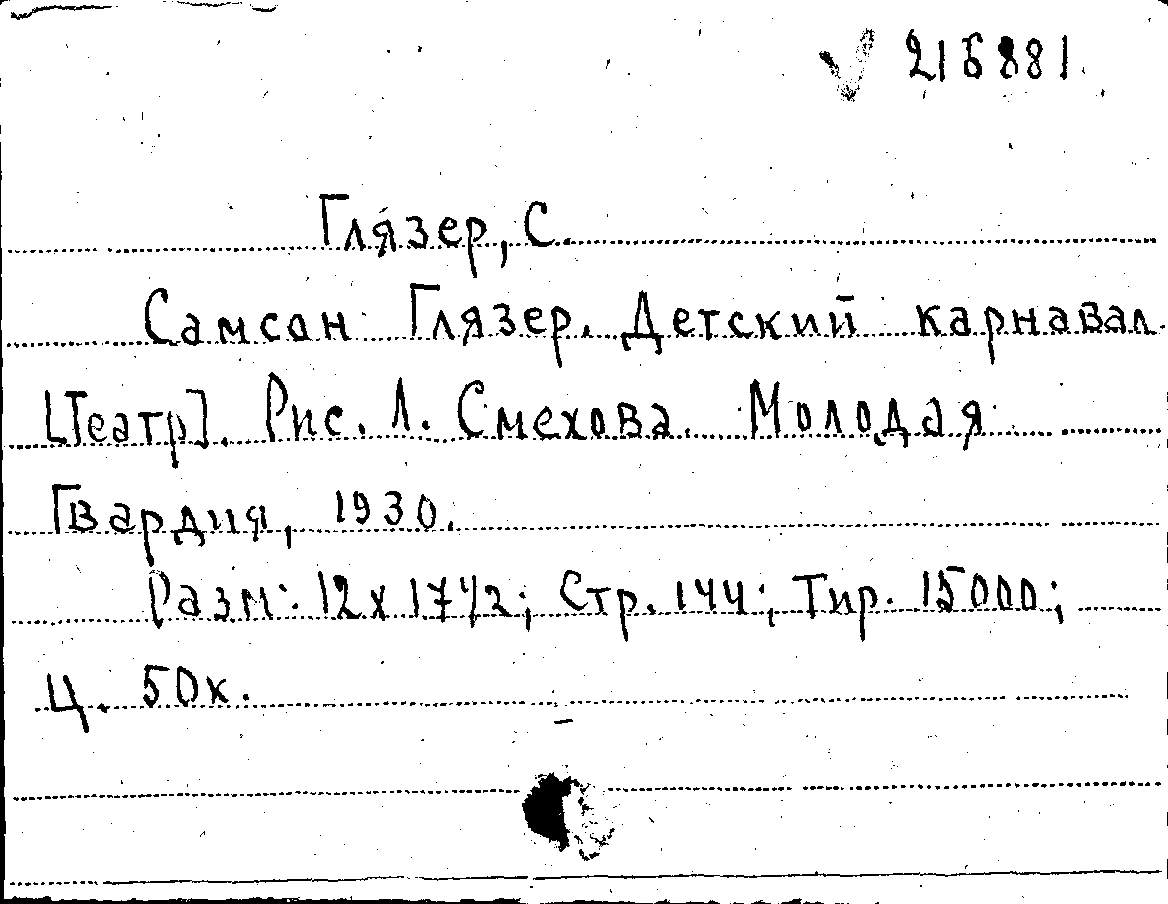 √ 216881.
Глязер, С.
Самсон Глязер. Детский карнавал
[Театр]. Рис. Л. Смехова. Молодая
Гвардия, 1930.
Разм: 12 х 17 1/2; Стр. 144; Тир. 15000;
Ц. 50к.